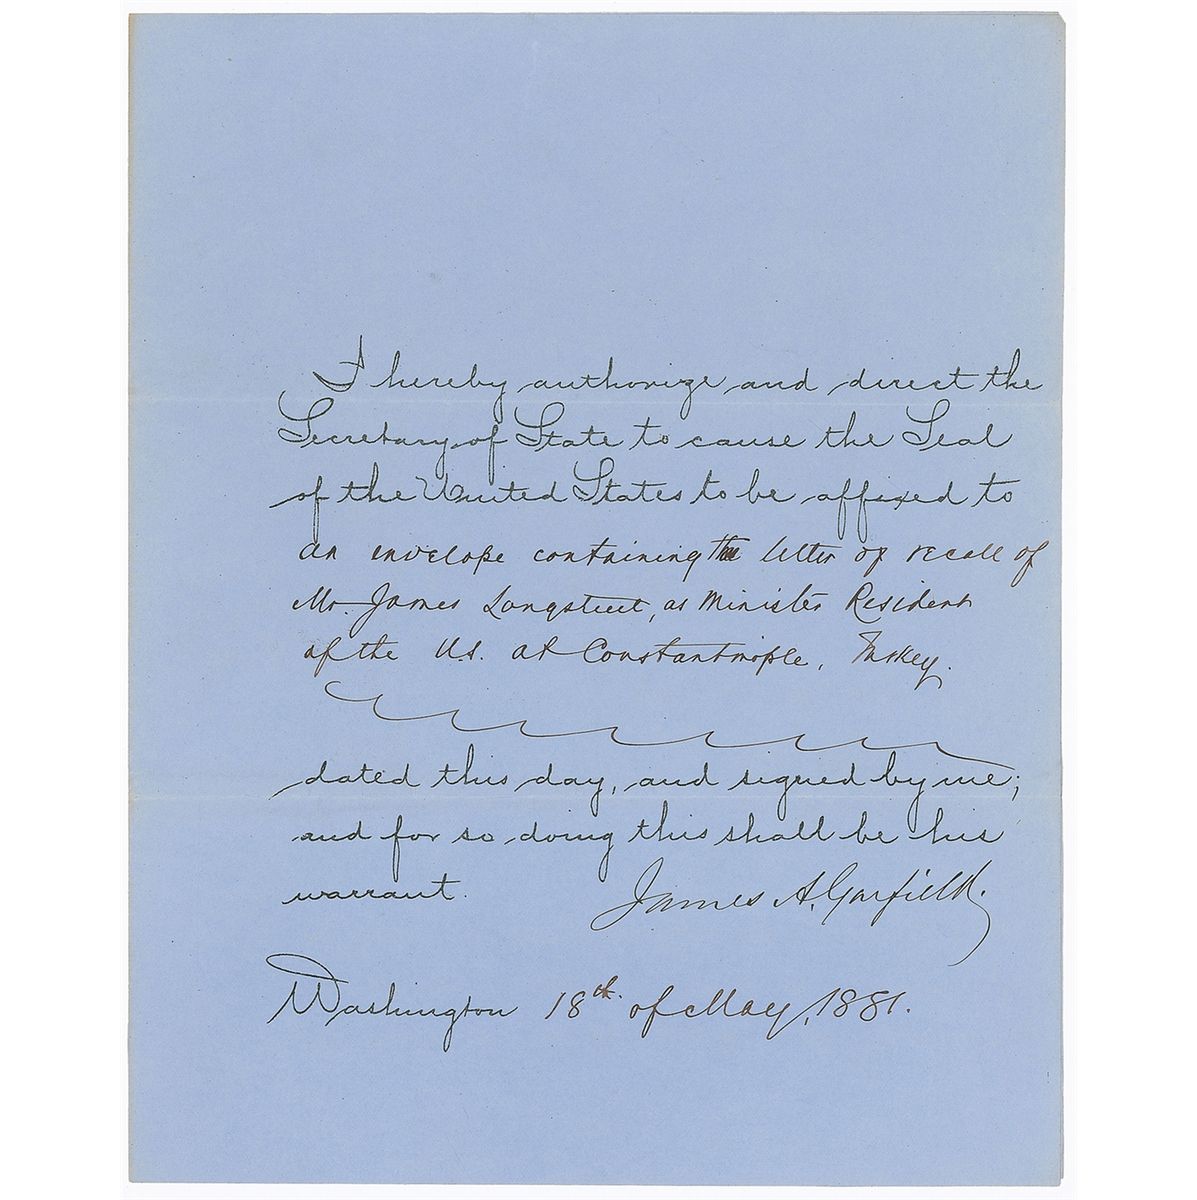 I hereby authorize and direct the
Secretary of State to cause the Seal
of the United States to be affixed to
an envelope containing the letter of recall of
Mr. James Longstreet, as Minister Resident
of the U.S. at Constantinople, Turkey.
dated this day, and signed by me;
and for so doing this shall be his
warrant.
James A. Garfield.
Washington 18th. of May, 1881.